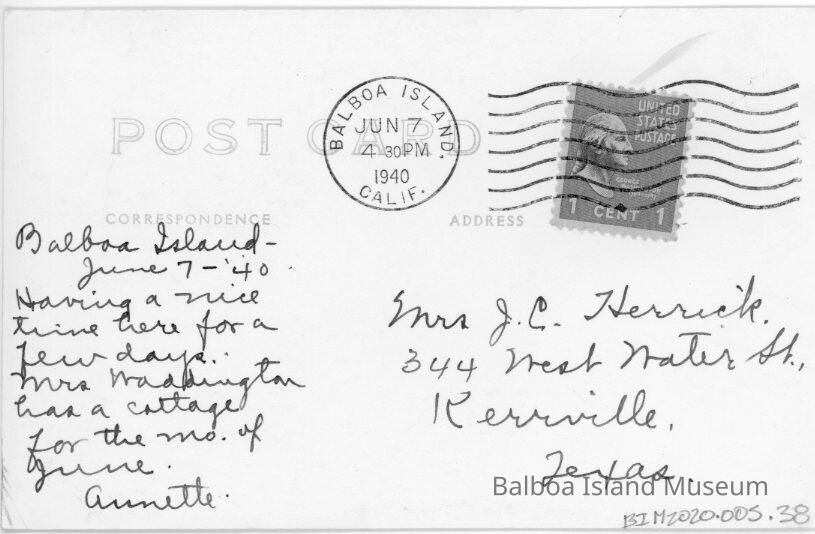 POST CARD
BALBOA ISLAND,
JUN 7
4 30 PM
1940
CALIF.
UNITED
STATES
POSTAGE
GEORGE
1 CENT 1
CORRESPONDENCE
ADDRESS
Balboa Island -
June 7 - '40.
Having a nice
time here for a
few days..
Mrs Waddington
has a cottage
for the mo. of
June.
Annette.
Mrs J. C. Herrick.
344 West Water St.,
Kerrville,
Texas.
Balboa Island Museum
BIM2020.005.38